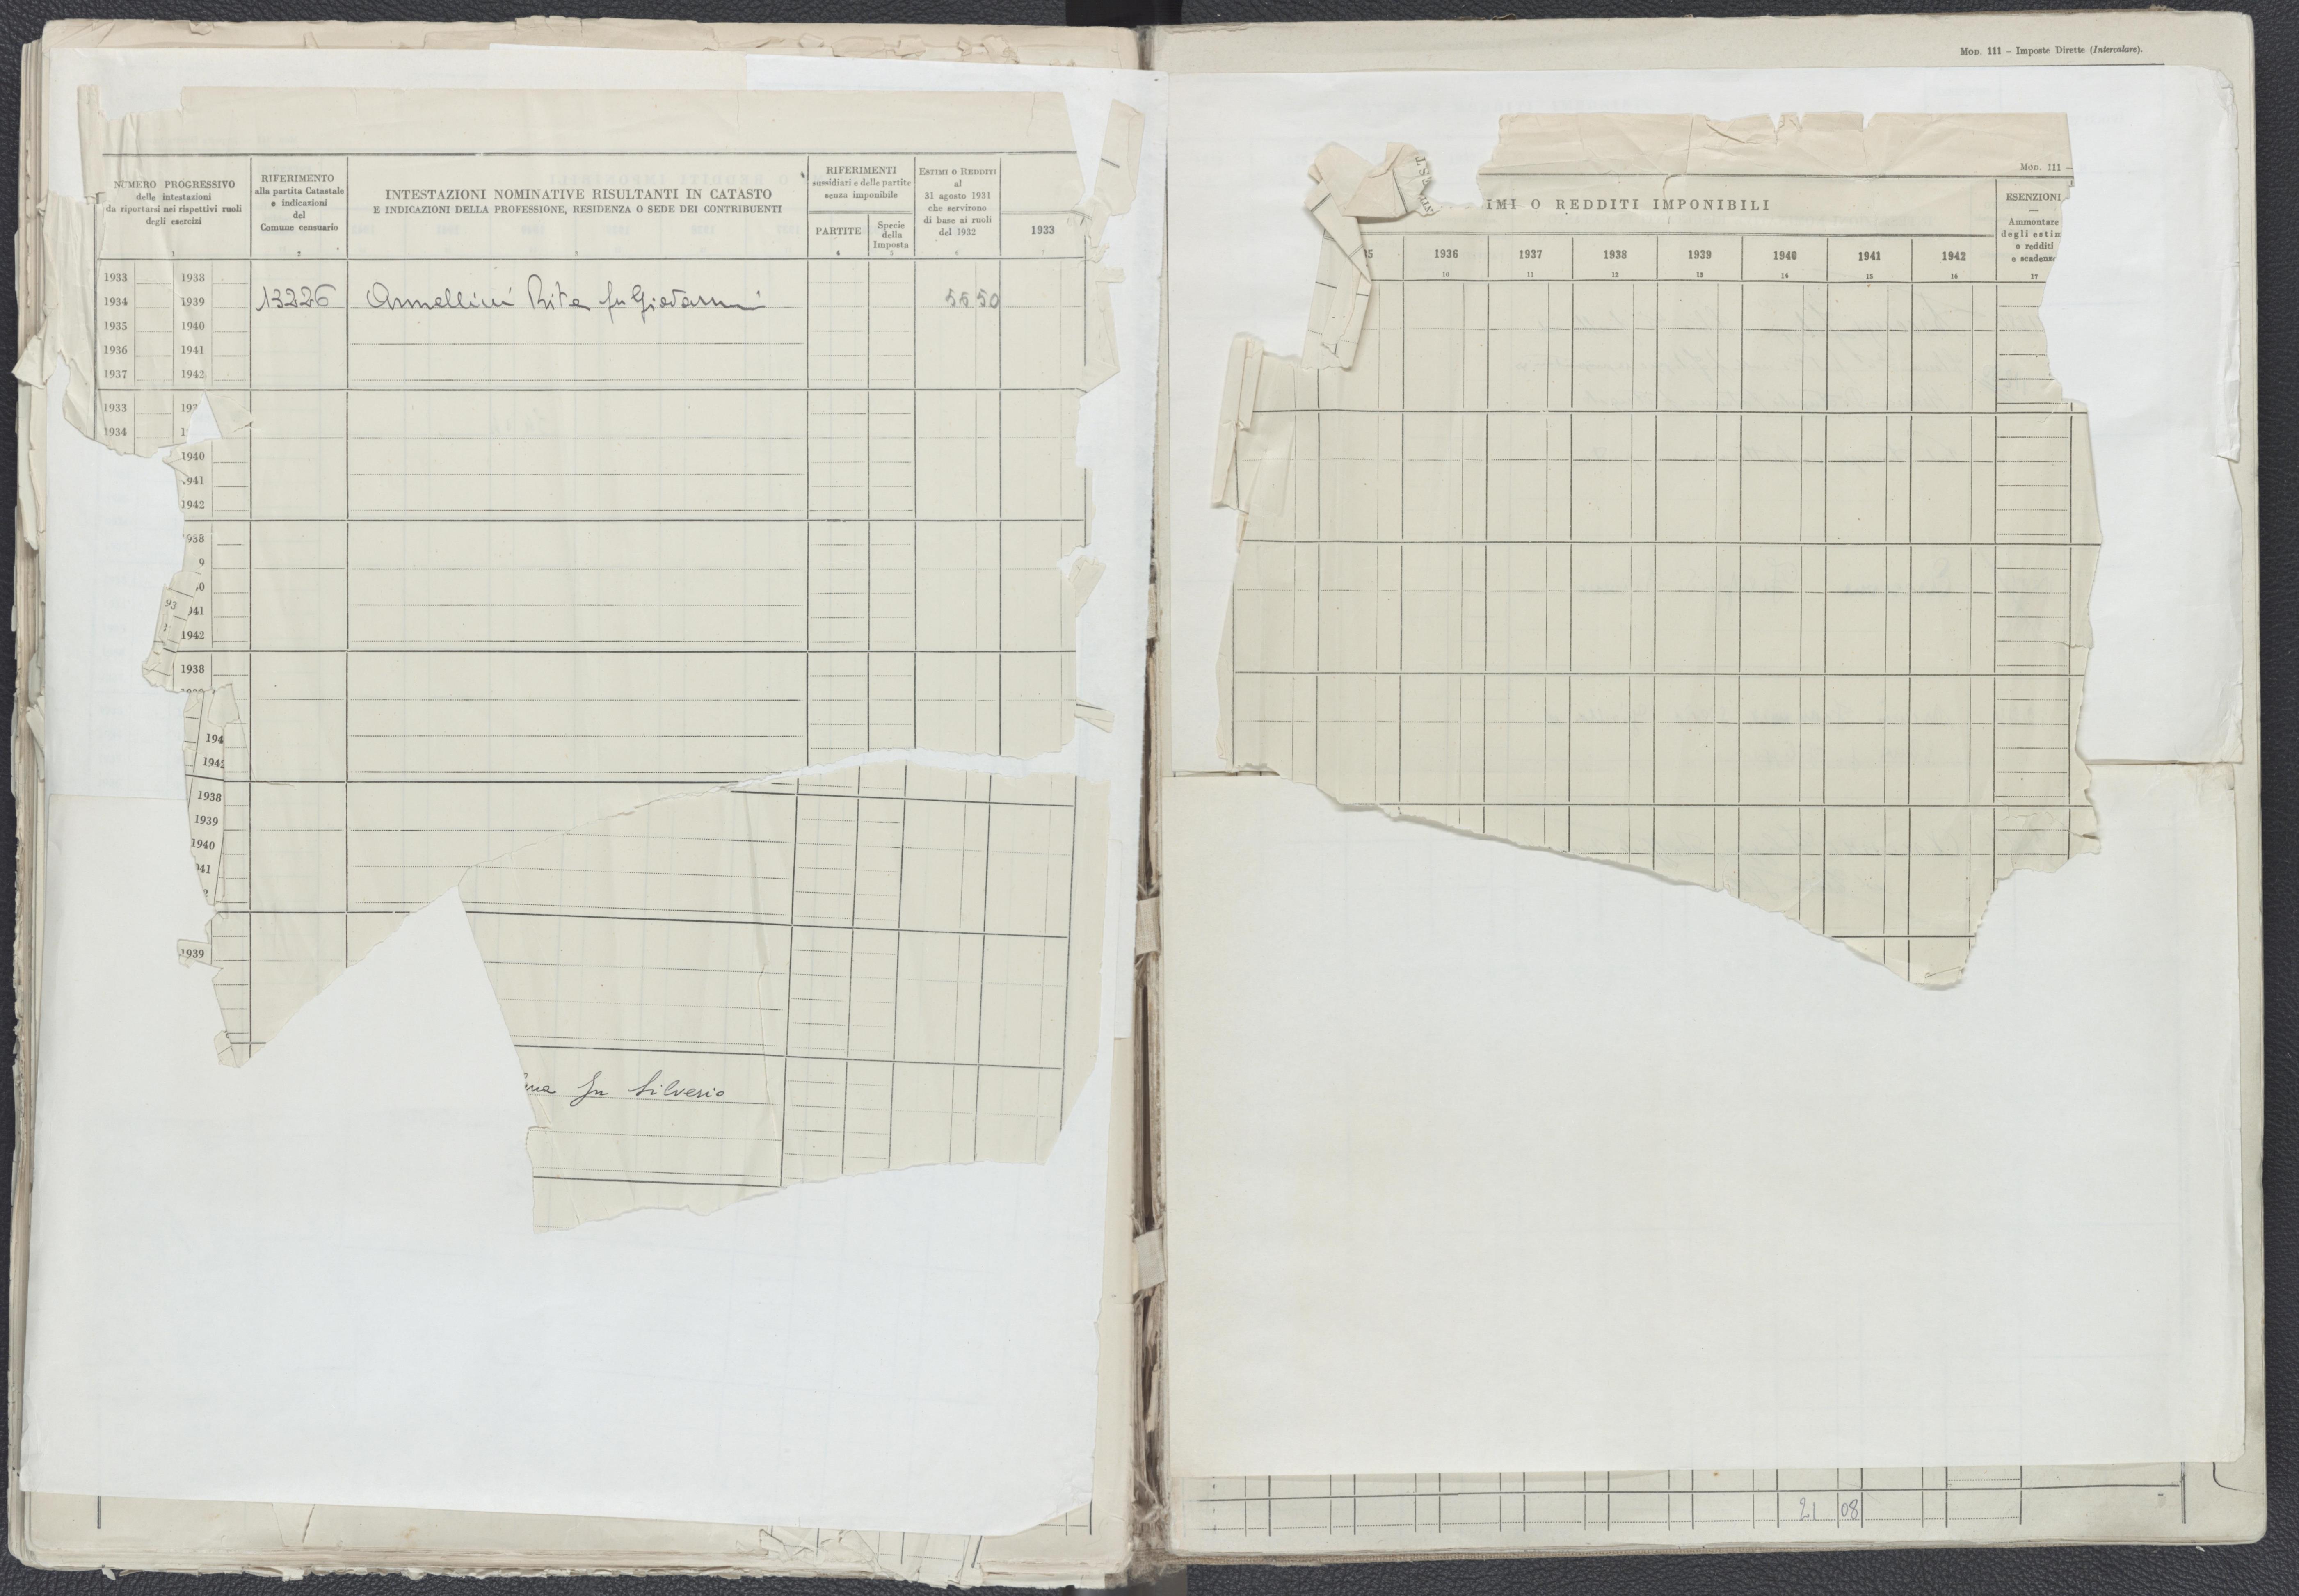 Mod. 111 – Imposte Dirette (Intercalare).
NUMERO PROGRESSIVO
delle intestazioni
da riportarsi nei rispettivi ruoli
degli esercizi
1
RIFERIMENTO
alla partita Catastale
e indicazioni
del
Comune censuario
2
INTESTAZIONI NOMINATIVE RISULTANTI IN CATASTO
E INDICAZIONI DELLA PROFESSIONE, RESIDENZA O SEDE DEI CONTRIBUENTI
3
RIFERIMENTI
sussidiari e delle partite
senza imponibile
PARTITE
4
Specie
della
Imposta
5
Estimi o Redditi
al
31 agosto 1931
che servirono
di base ai ruoli
del 1932
6
1933
1933 1938
1934 1939 13226 Armellini Rita fu Giovanni 55 50
1935 1940
1936 1941
1937 1942
1933 193
1934 1
1940
941
1942
938
9
0
93 941
1942
1938
194
1942
1938
1939
1940
941
2
1939
na fu Silverio
Mod. 111 –
IMI O REDDITI IMPONIBILI
35 1936 1937 1938 1939 1940 1941 1942
10 11 12 13 14 15 16
ESENZIONI
—
Ammontare
degli estim
o redditi
e scadenz
17
21 08